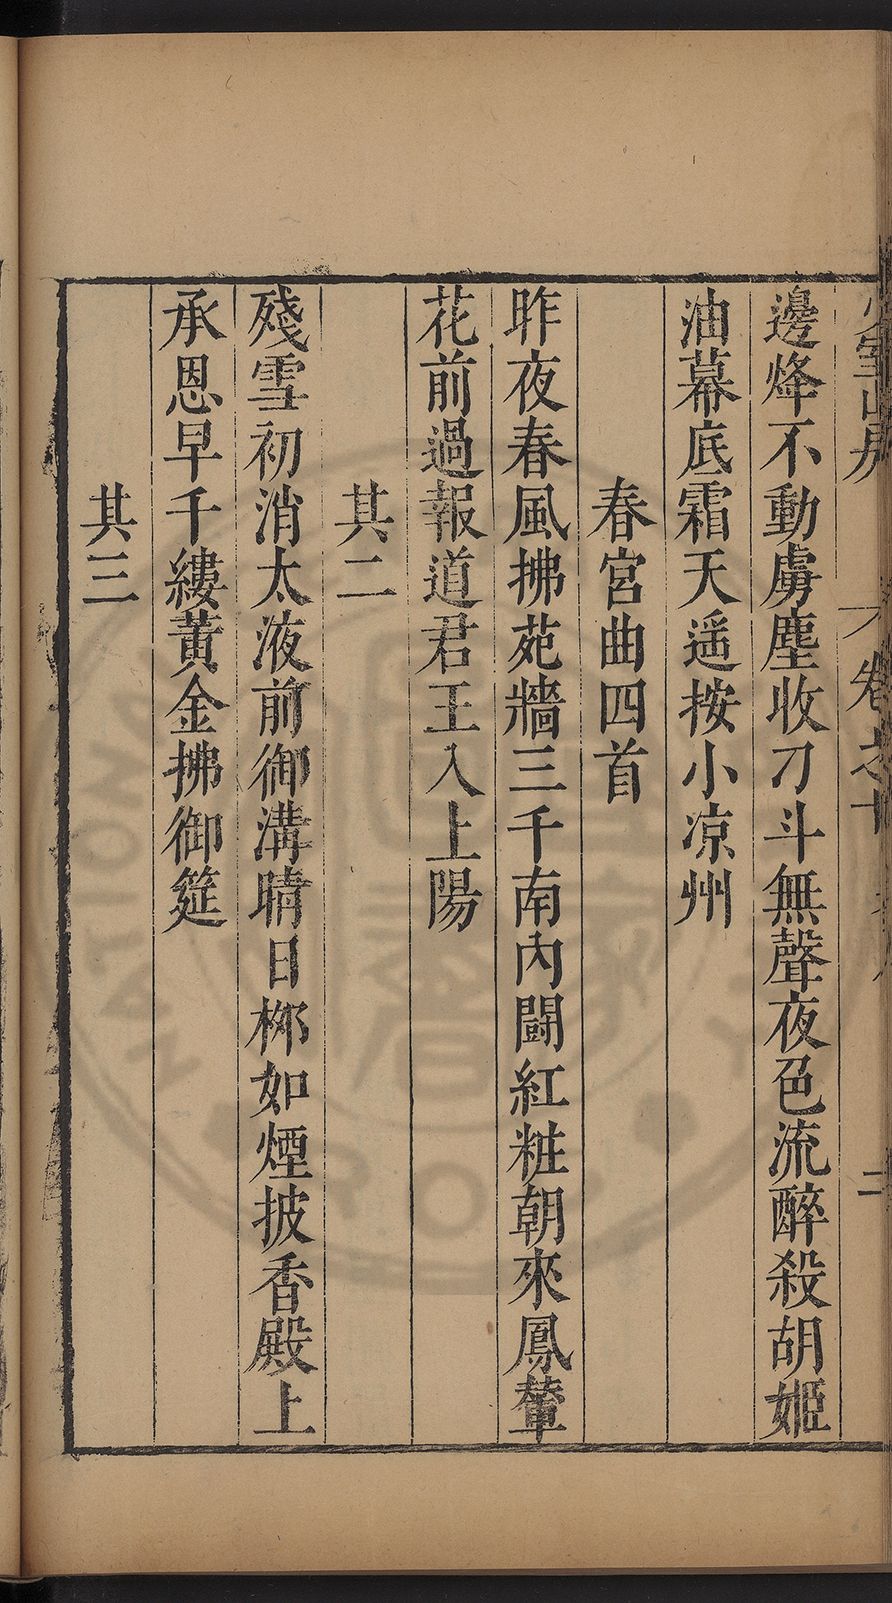 少室山房 卷之十 二
邊烽不動虜塵收刁斗無聲夜色流醉殺胡姬
油幕底霜天遥按小凉州
春宮曲四首
昨夜春風拂苑牆三千南內鬪紅粧朝來鳳輦
花前過報道君王入上陽
其二
殘雪初消太液前御溝晴日桞如煙披香殿上
承恩早千縷黃金拂御筵
其三